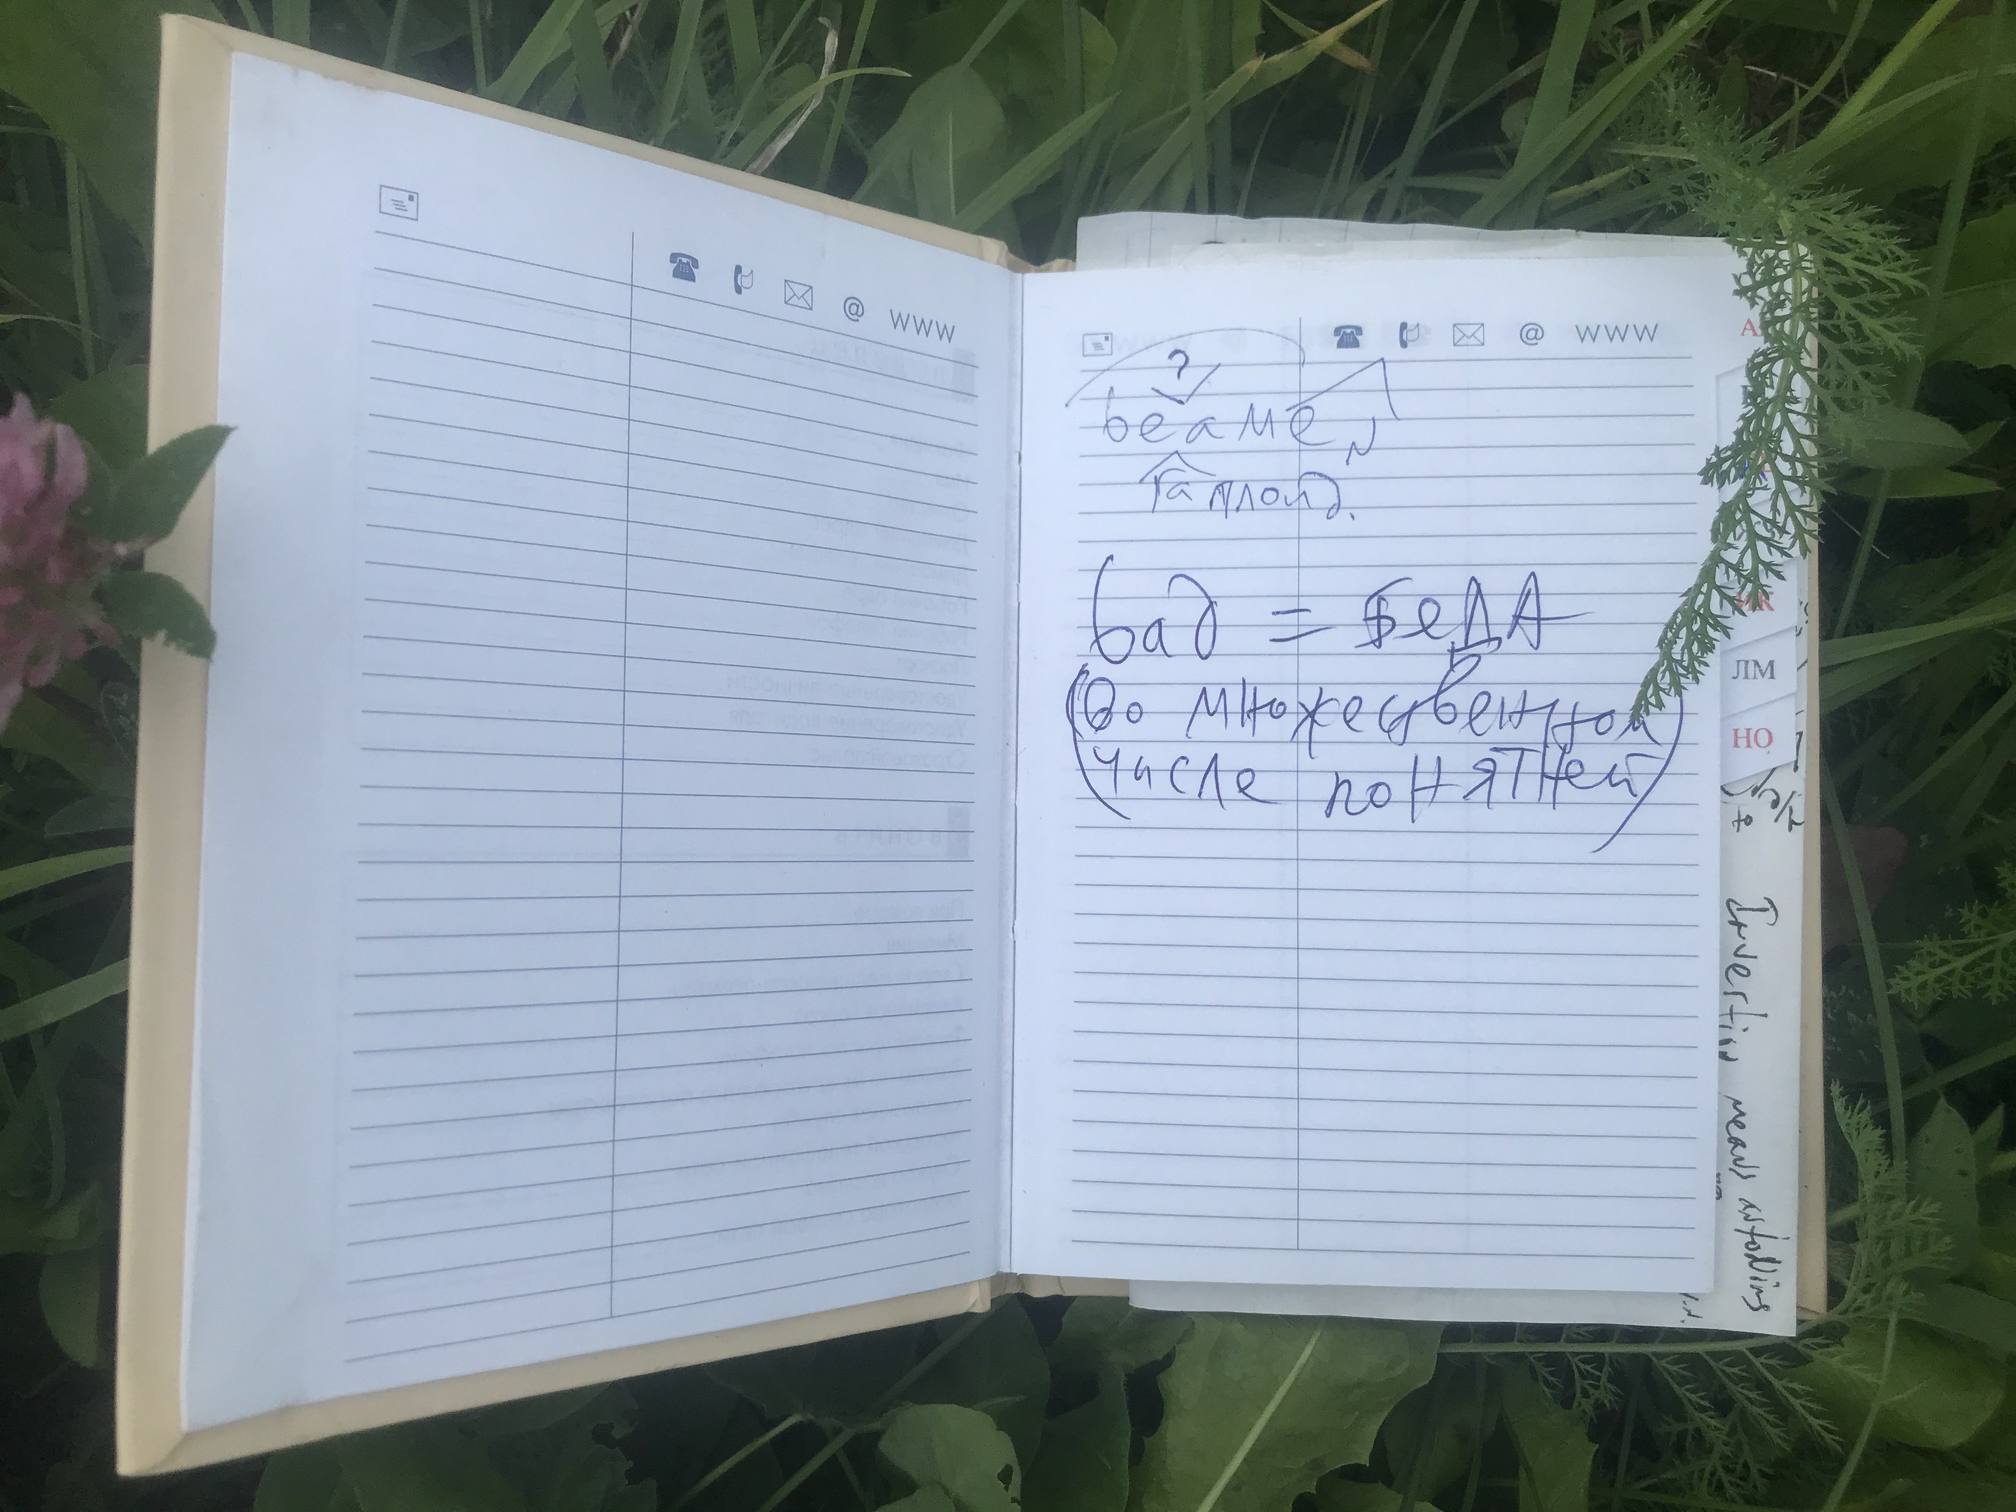 @ WWW
@ WWW
?
беаме
гаплоид.
бад = БеДА
(Во множественном
числе понятней)
ЛМ
НО
Invertin means